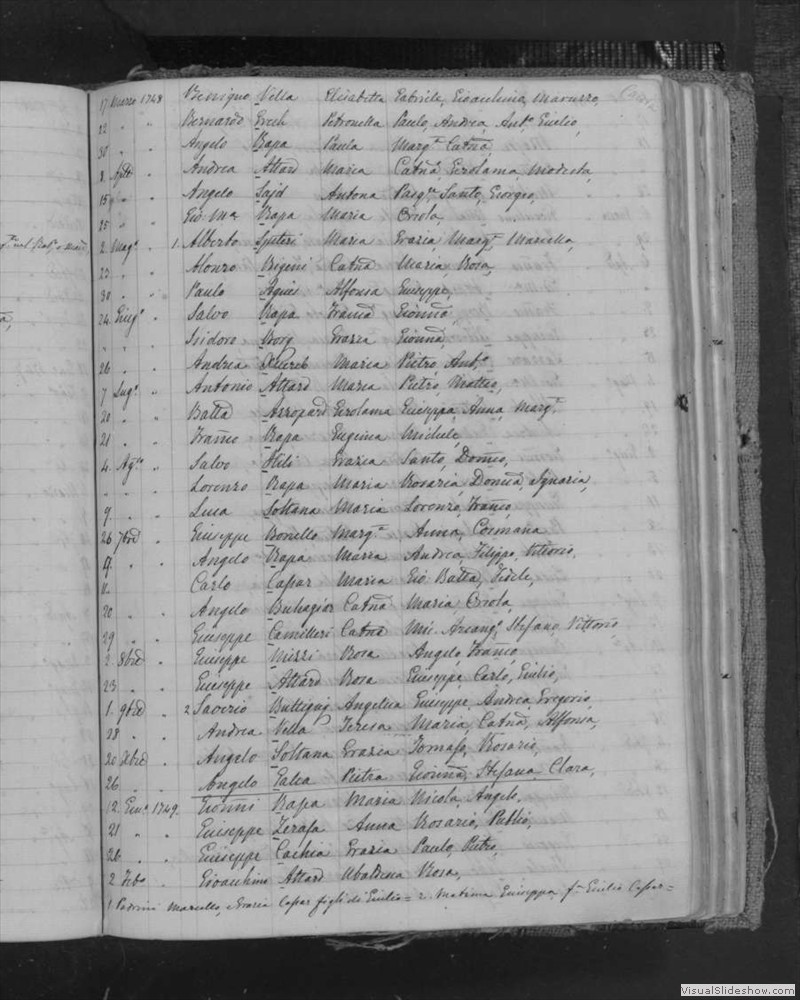 17 Marzo 1748 Benigno Vella Elisabetta Gabriele, Gioachina, Maruzzo,
22 " " Bernardo Grech Petronella Paulo, Andrea, Ant.o Giulio,
30 " " Angelo Rapa Paula Marg.a Catña,
8 " Andrea Attard Maria Catña, Girolama Modesta,
15 " " Angelo Sajd Antona Santo, Giorgio,
25 " " Gio. M.a Rapa Maria
2 Mag.o " 1. Alberto Spiteri Maria Grazia Marg.a Mariella,
23 " " Alonzo Catña Maria Rosa,
30 " " Paulo Agius Alfonsa Giuseppe,
24 Giug.o " Salvo Rapa
" " " Isidoro Borg Grazia
26 " " Andrea Xuereb Maria Pietro, Ant.o
7 Lug.o " Antonio Attard Maria Pietro, Matteo,
20 " " Batta Azzopard Girolama Giuseppa, Anna, Marg.a
21 " " Rapa Eugenia Michele,
4 Ag.to " Salvo Stili Grazia Santo,
" " " Lorenzo Rapa Maria Rosaria, Ignazia,
9 " " Luca Soltana Maria Lorenzo,
26 7bre " Giuseppe Bonello Marg.a Anna, Cosmana
9 " " Angelo Rapa Maria Andrea, Filippo, Vittorio,
" " Carlo Caspar Maria Gio. Batta, Fidele,
20 " " Angelo Buhagiar Catña Maria
29 " " Giuseppe Camilleri Catña Mic. Arcang.o Stefano, Vittorio,
2 8bre " Giuseppe Mizzi Rosa Angelo,
23 " " Giuseppe Attard Rosa Giuseppe, Carlo, Giulio,
1 9bre " 2 Saverio Buttigieg Angelica Giuseppe, Andrea, Gregorio,
28 " " Andrea Vella Teresa Maria, Catña, Alfonsa,
20 Xbre " Angelo Soltana Grazia Tomaso, Rosario,
26 " " Angelo Galea Pietra Stefana, Clara,
12 Gen.o 1749. Gionni Rapa Maria Nicola, Angelo,
21 " " Giuseppe Zerafa Anna Rosario, Publio,
26 " " Giuseppe Cachia Grazia Paulo, Pietro,
2 Feb.o " Gioachino Attard Ubaldina Rosa,
1 Padrini Marcello, e Grazia Caspar figli di Giulio = 2. Matrina Giuseppa f.a Giulio Caspar =
VisualSlideshow.com